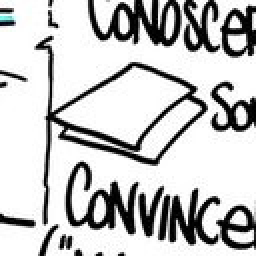 CONOSCER
SO
CONVINCE
("